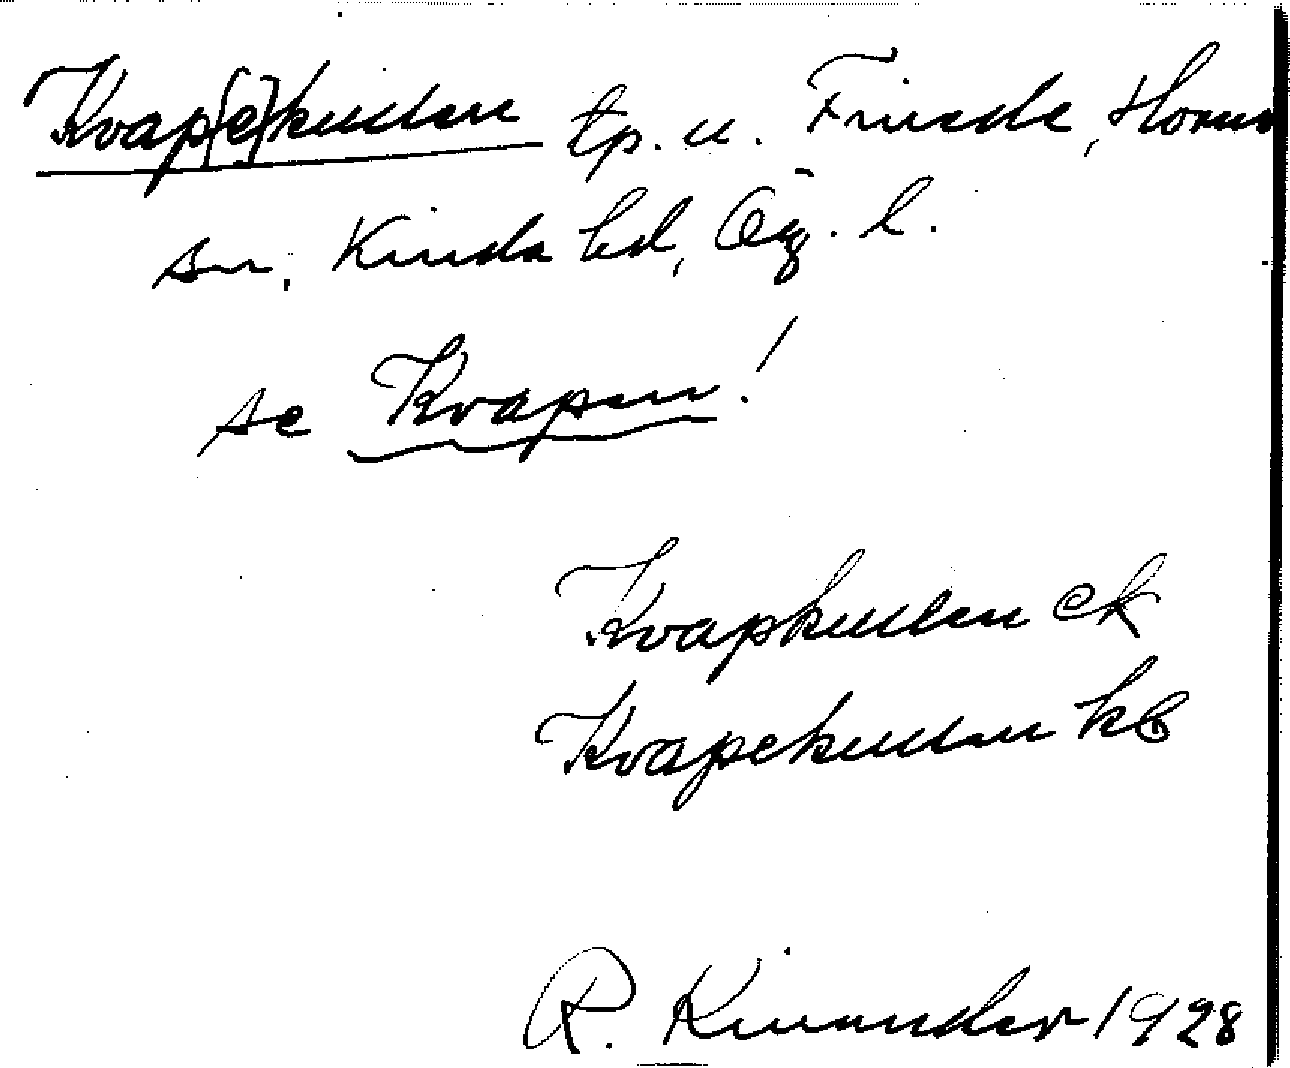 Kvap(e)kullen tp. u. Horns
sn, Kinda hd, Ög. l.
se Kvapen!
Kvapkullen ek
Kvapekullen kb
R. Kinander 1928